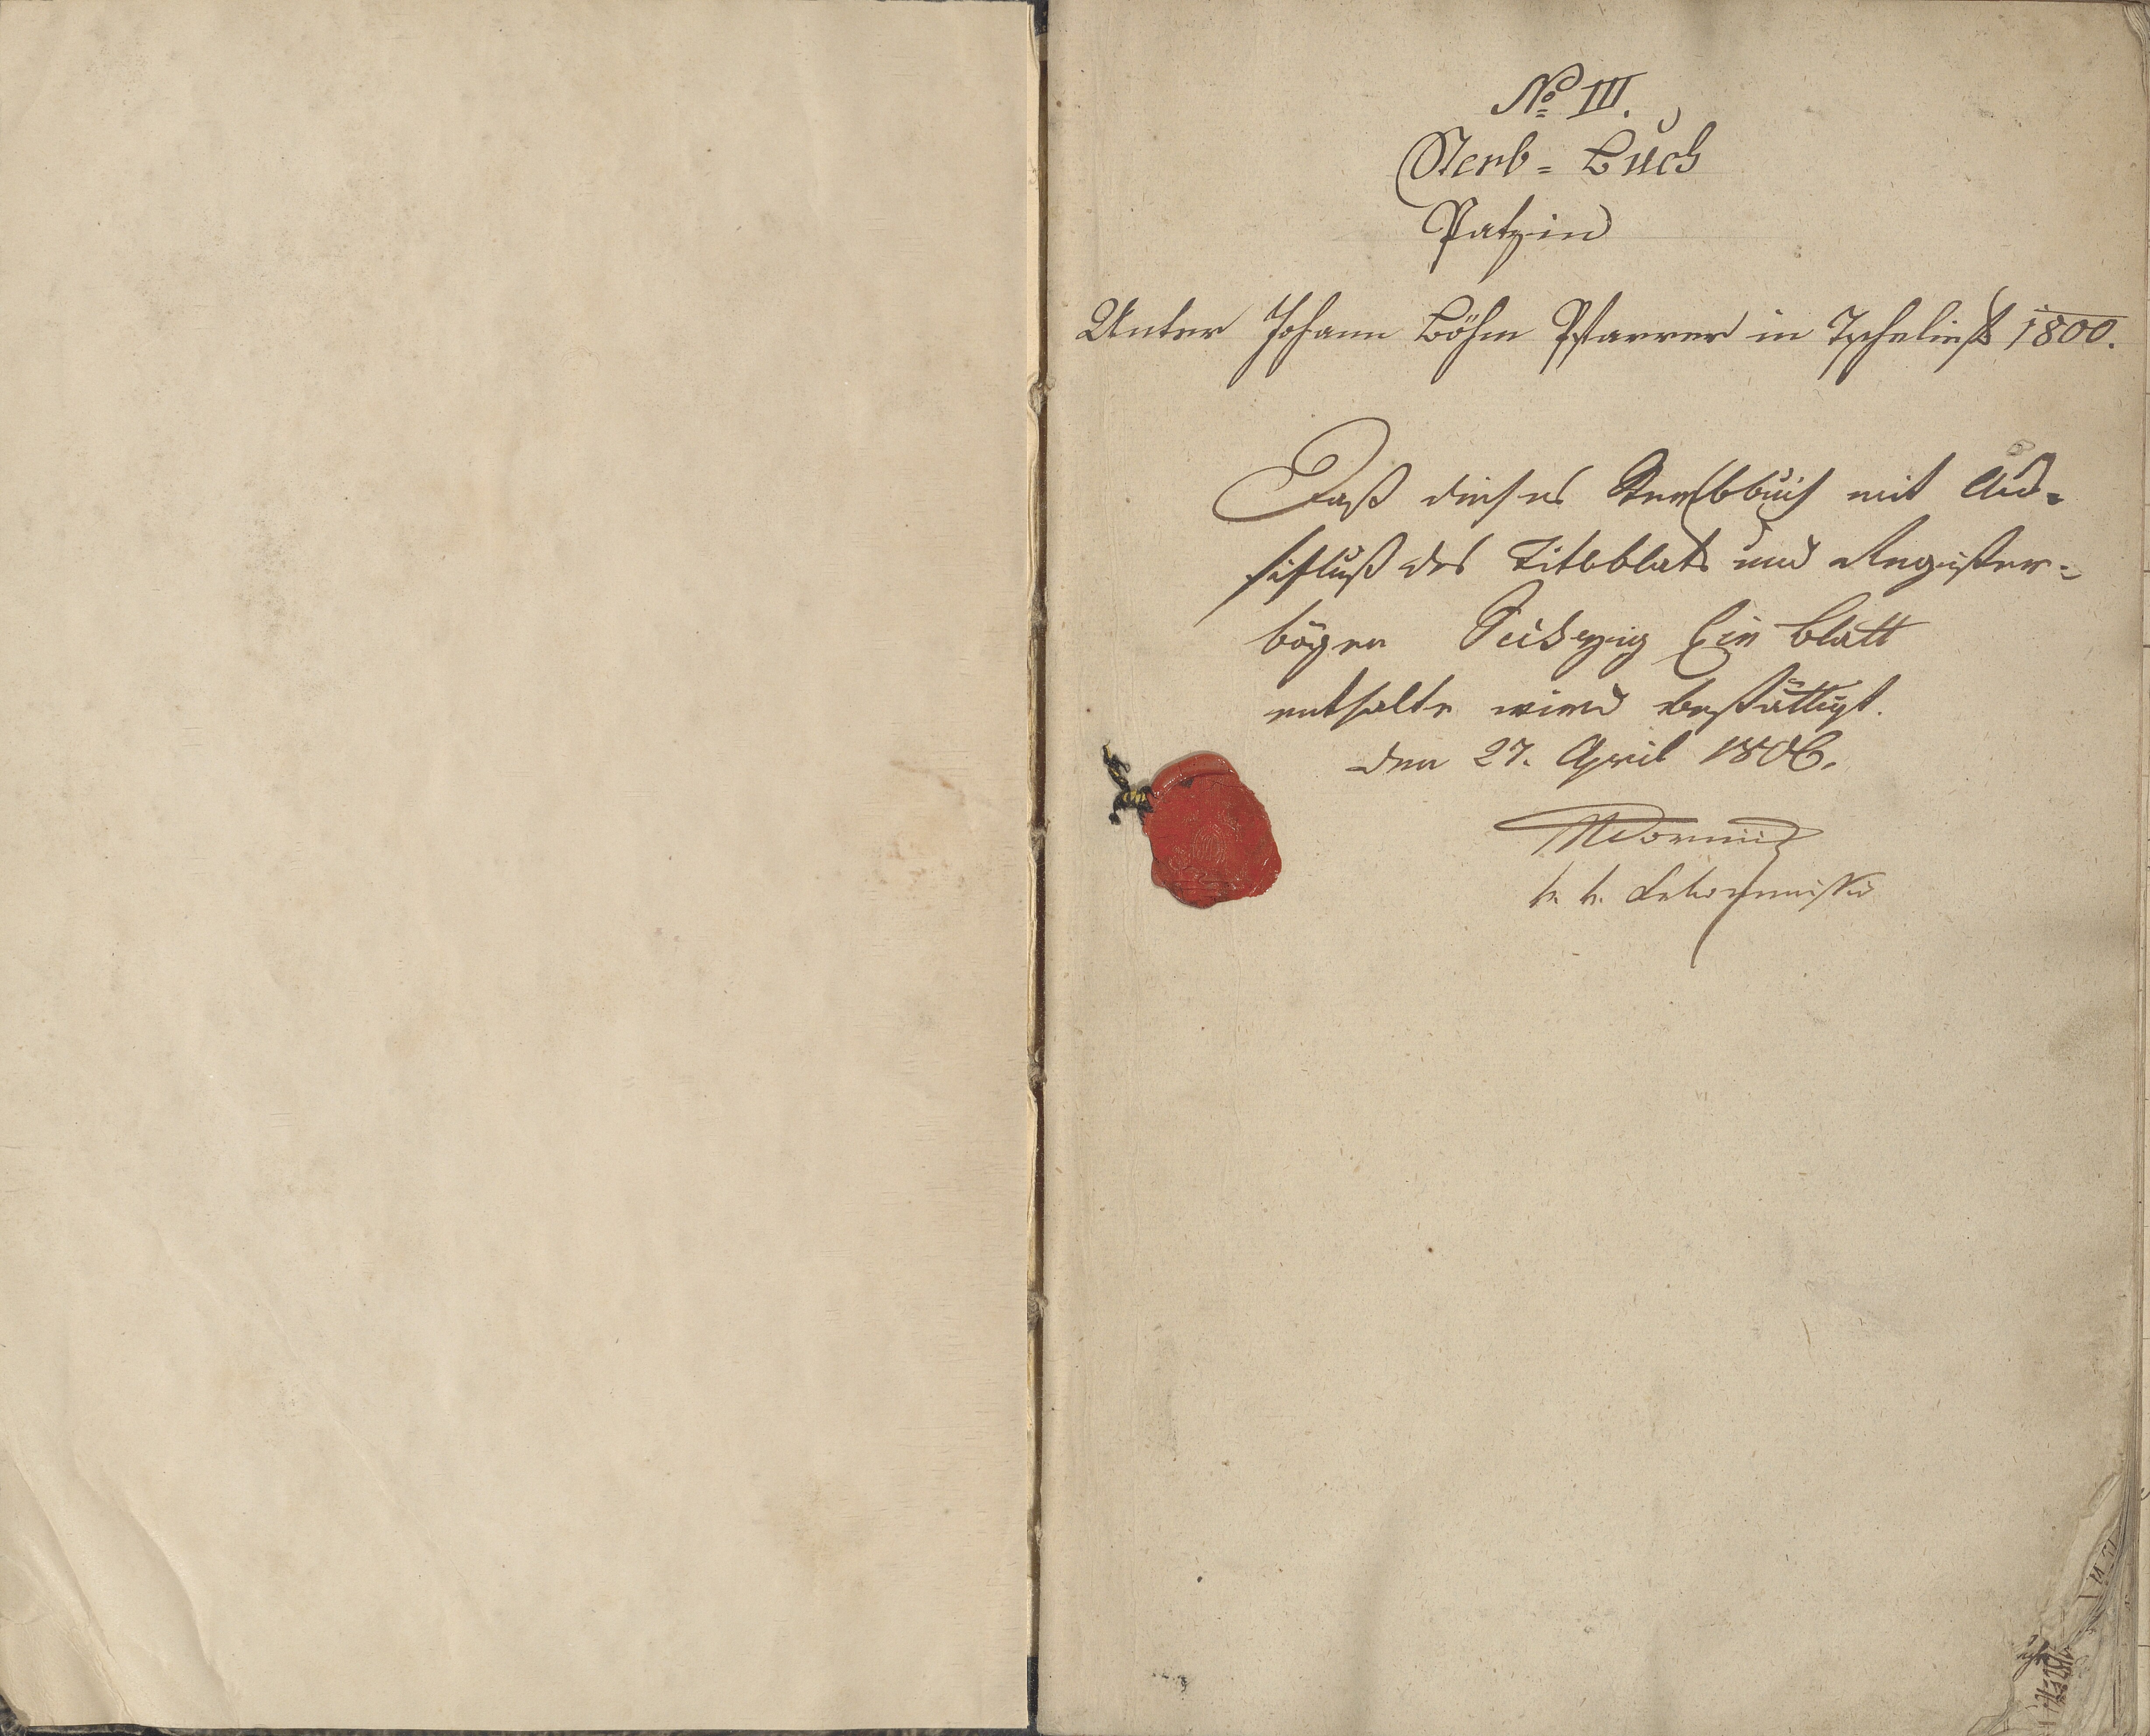 No III.
Sterb = Buch
Patzin
Unter Johann Böhm Pfarrer in Tscheliesk 1800.
Daß dieses Sterbbuch mit Aus=
schluß des Titlblats und Register=
bögen Sechzig Ein Blatt
enthalte wird bestättigt.
den 27. April 1806.
k. k.